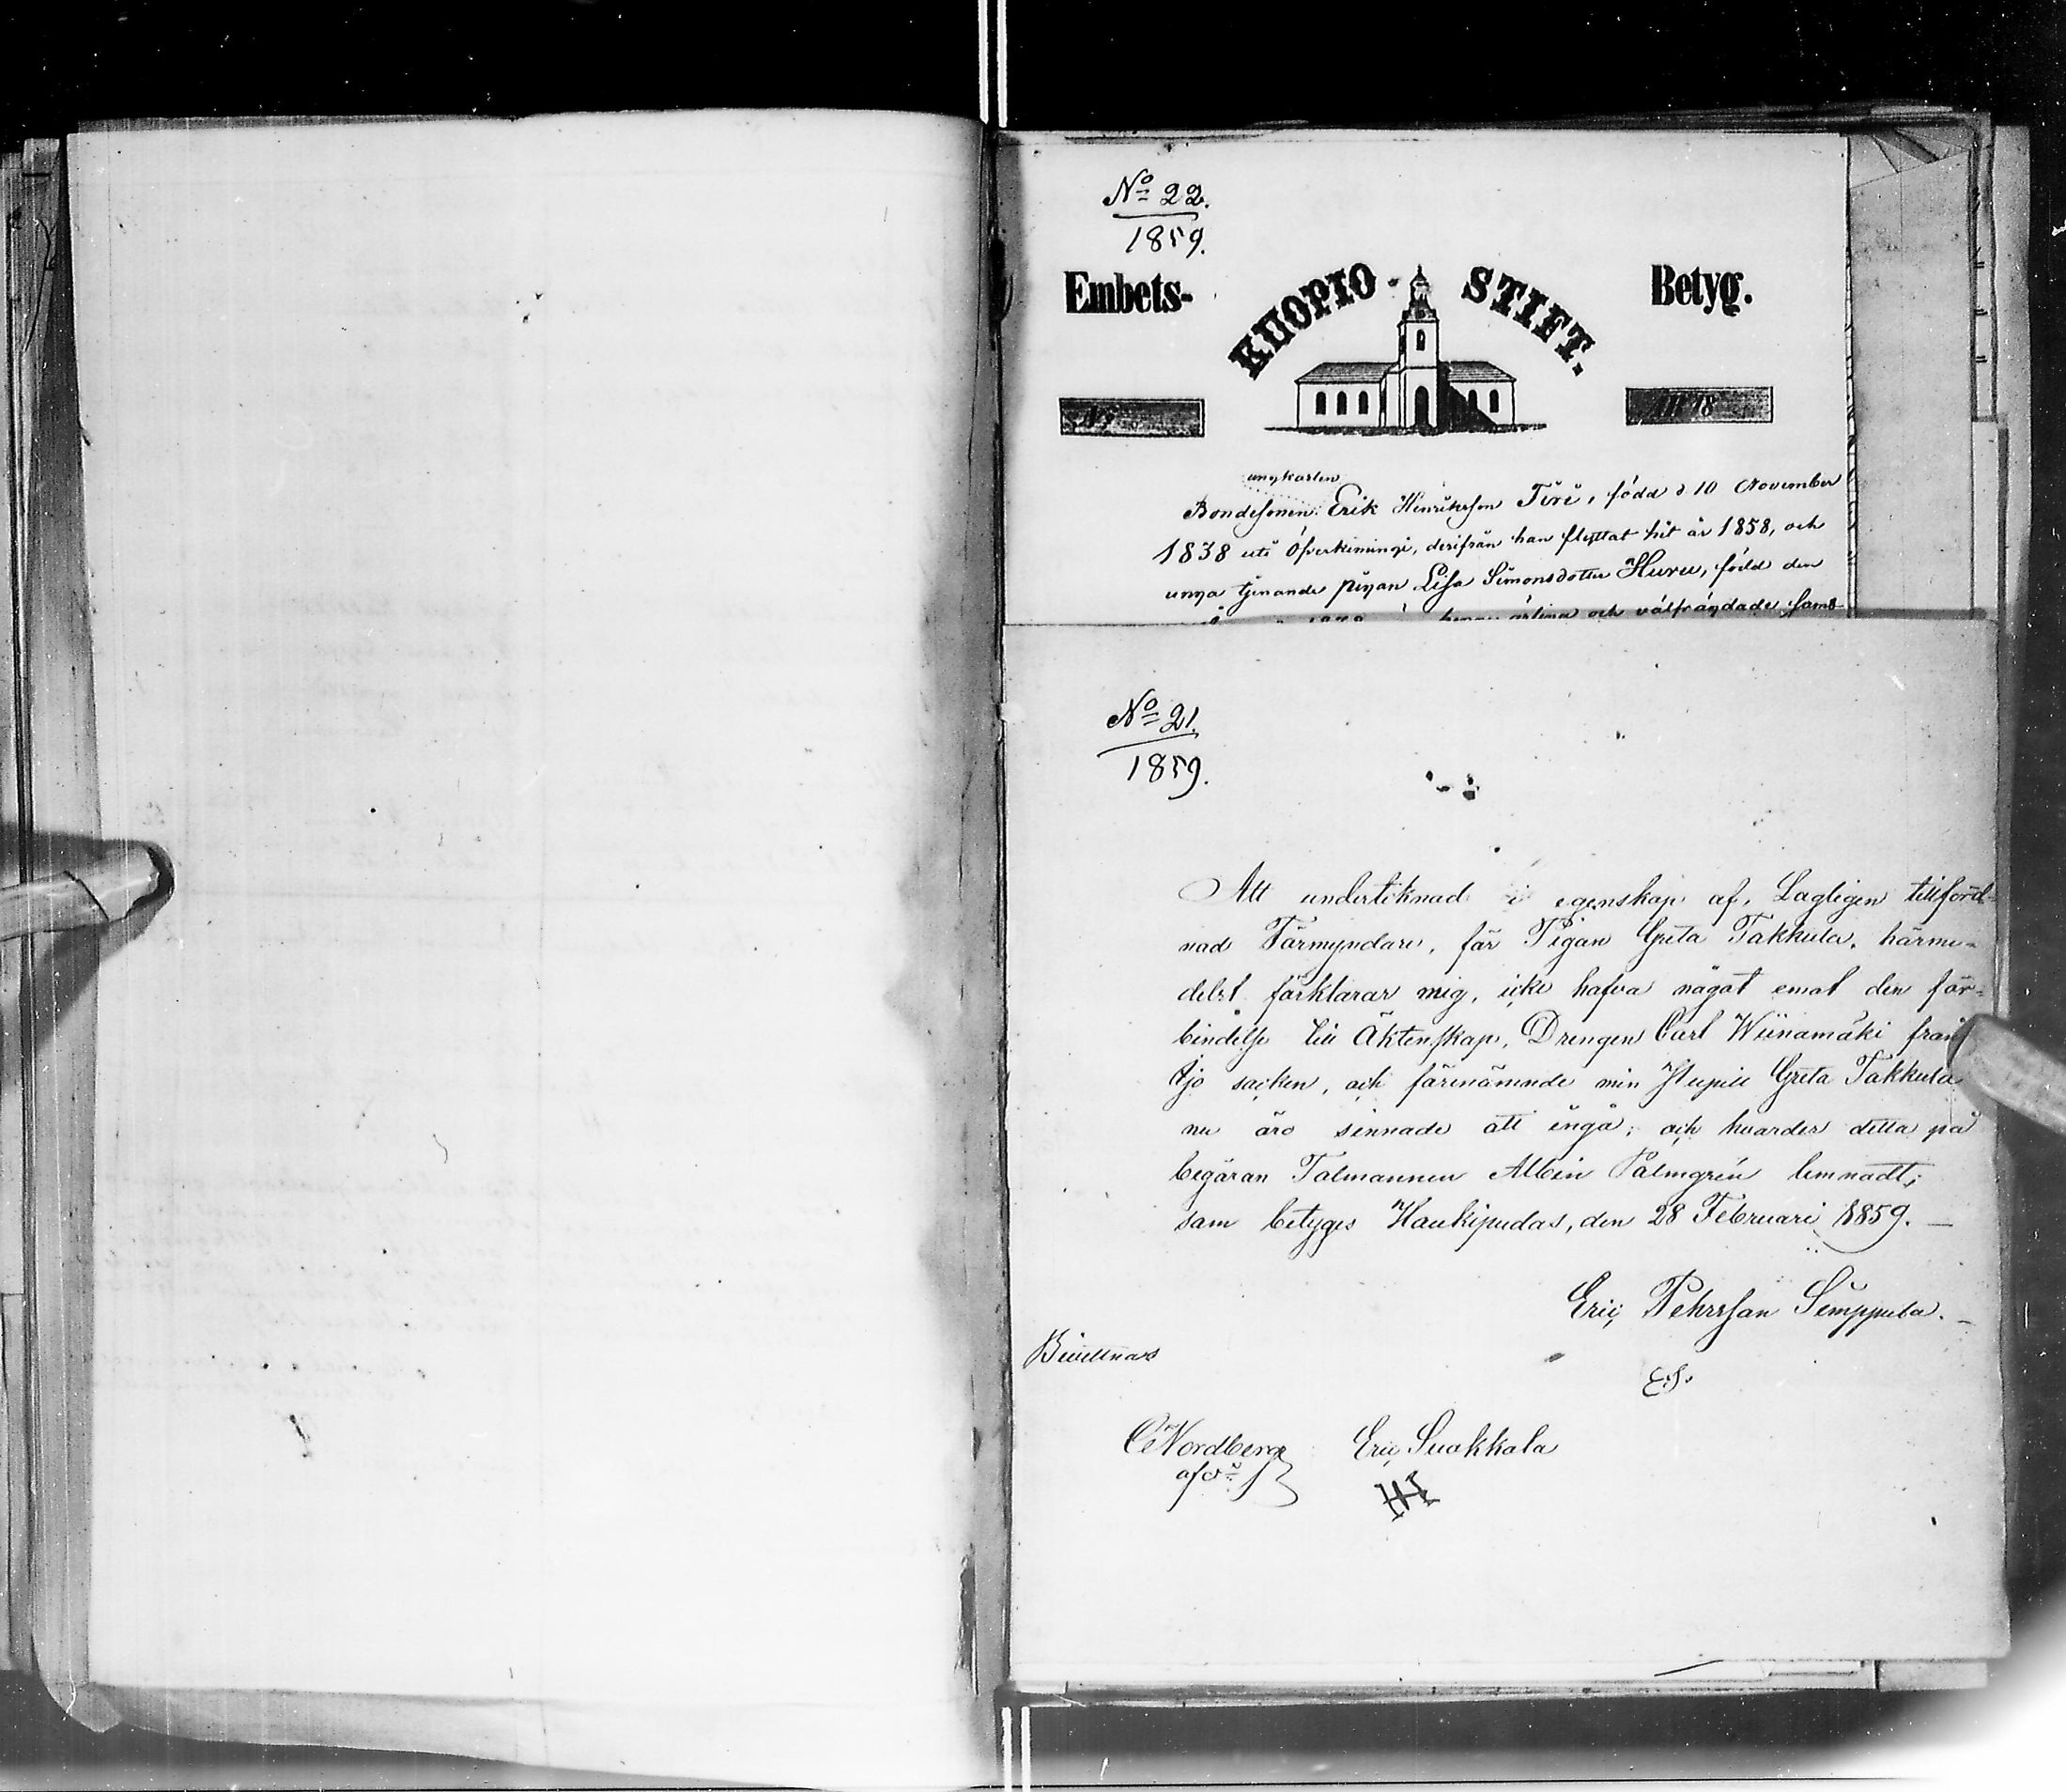 No 22.
1859.
Embets- KUOPIO STIFT. Betyg.
No
År 18
ungkarlen
Bondesonen Erik Henriksson Tiri, född d 10 November
1838 uti Öfverkiminge, derifrån han flyttat hit år 1858, och
unga tjenande pigan Lisa Simonsdotter Huru, född den
ärliga och välfrägdade sams
No 21.
1859.
Att undertiknad i egenskap af, Lagligen tillförd-
nad Färmyndare, får Pigan Greta Takkula, härme-
delst färklarar mig, icke hafva något emot den för-
bindelse till Äktenskap, Drengen Carl Wiinamäki från
Ijo sacken, och färenämnde min Greta Takkula
nu äro sinnade att ingå; och hvarder detta på
begäran Talmannen Albin Palmgrén lemnadt;
sam betyges Haukipudas, den 28 Februari 1859. —
Eric Pehrssan Simppula. —
Bevittnas
E.S.
C Nordberg Eric Suakkala